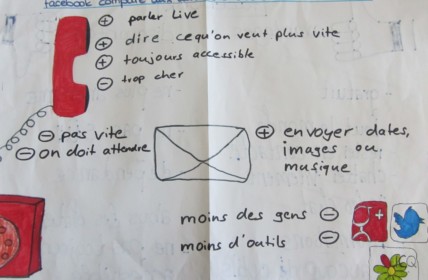 facebook comparé aux
⊕ parler Live
⊕ dire cequ'on veut plus vite
⊕ toujours accessible
⊖ trop cher
⊖ pas vite
⊖ on doit attendre
⊕ envoyer dates,
images ou
musique
moins des gens ⊖
moins d'outils ⊖
g+
ICQ